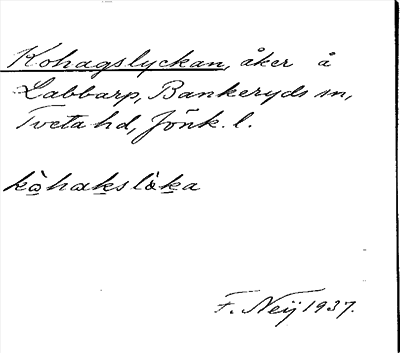 Kohagslyckan, åker å
Labbarp, Bankeryds sn,
Tveta hd, Jönk. l.
kò̱haḵslò̱ḵa
F. Neij 1937.